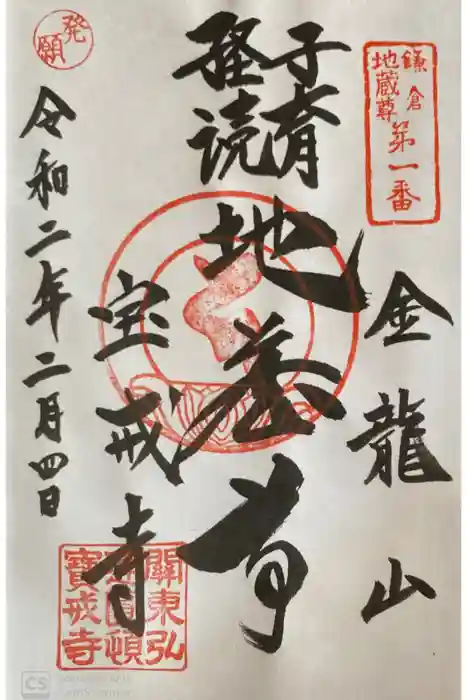 鎌倉
地蔵尊
第一番
金龍山
子育
経読
地蔵尊
宝戒寺
令和二年二月四日
発願
關東弘
圓頓
寶戒寺
CS